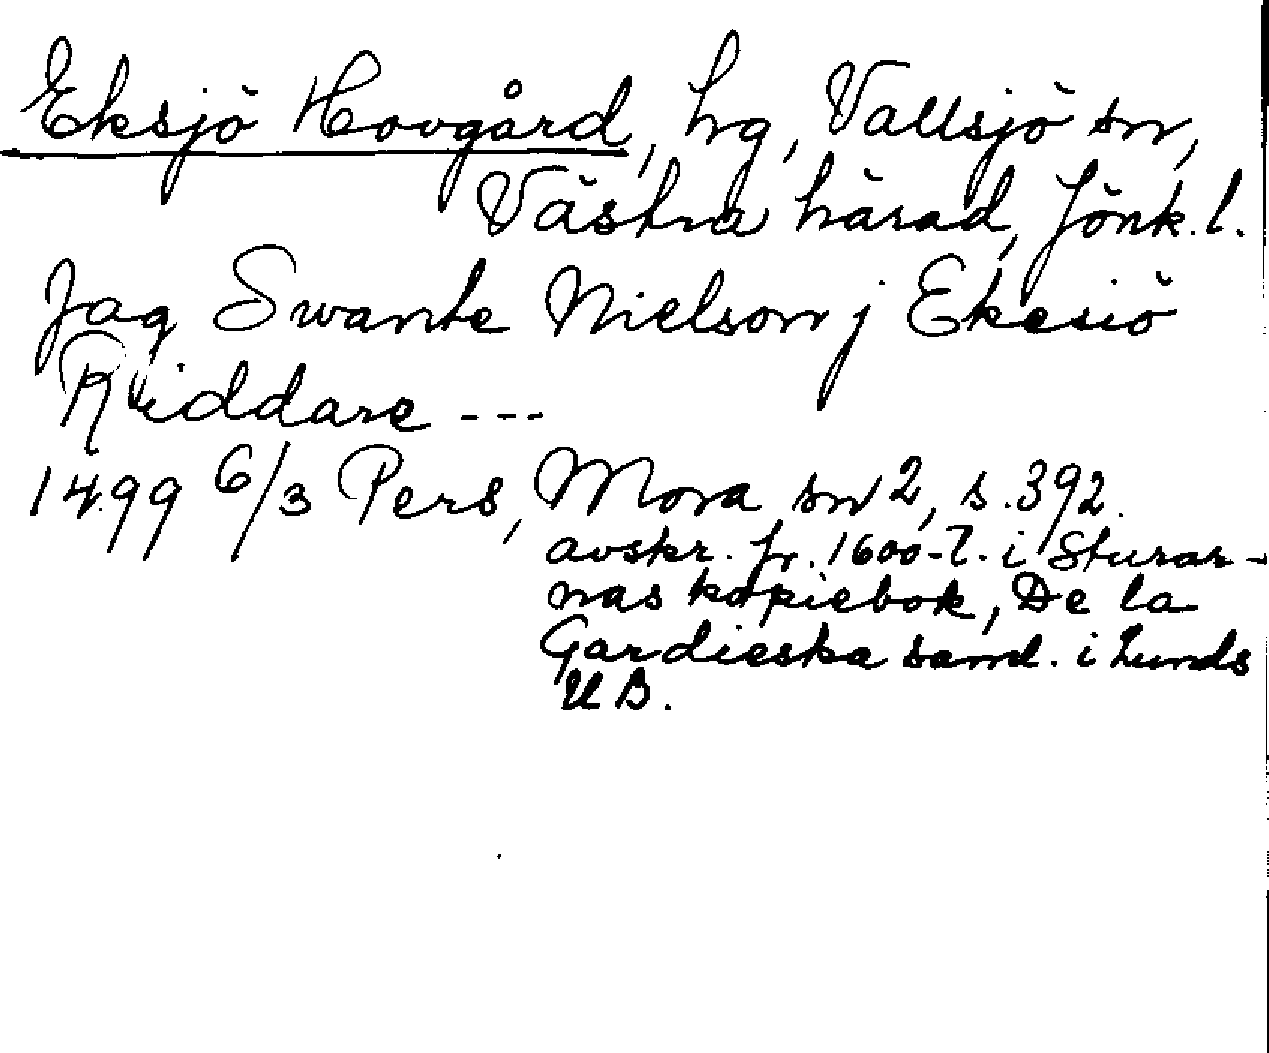 Eksjö Hovgård, hg, Vallsjö sn,
Västra härad, Jönk. l.
Jag Swante Nielson j Ekesiö
Riddare ---
1499 6/3 Pers, Mora sn 2, s. 392.
avskr. fr. 1600-t. i Sturar-
nas kopiebok, De la
Gardieska saml. i Lunds
UB.